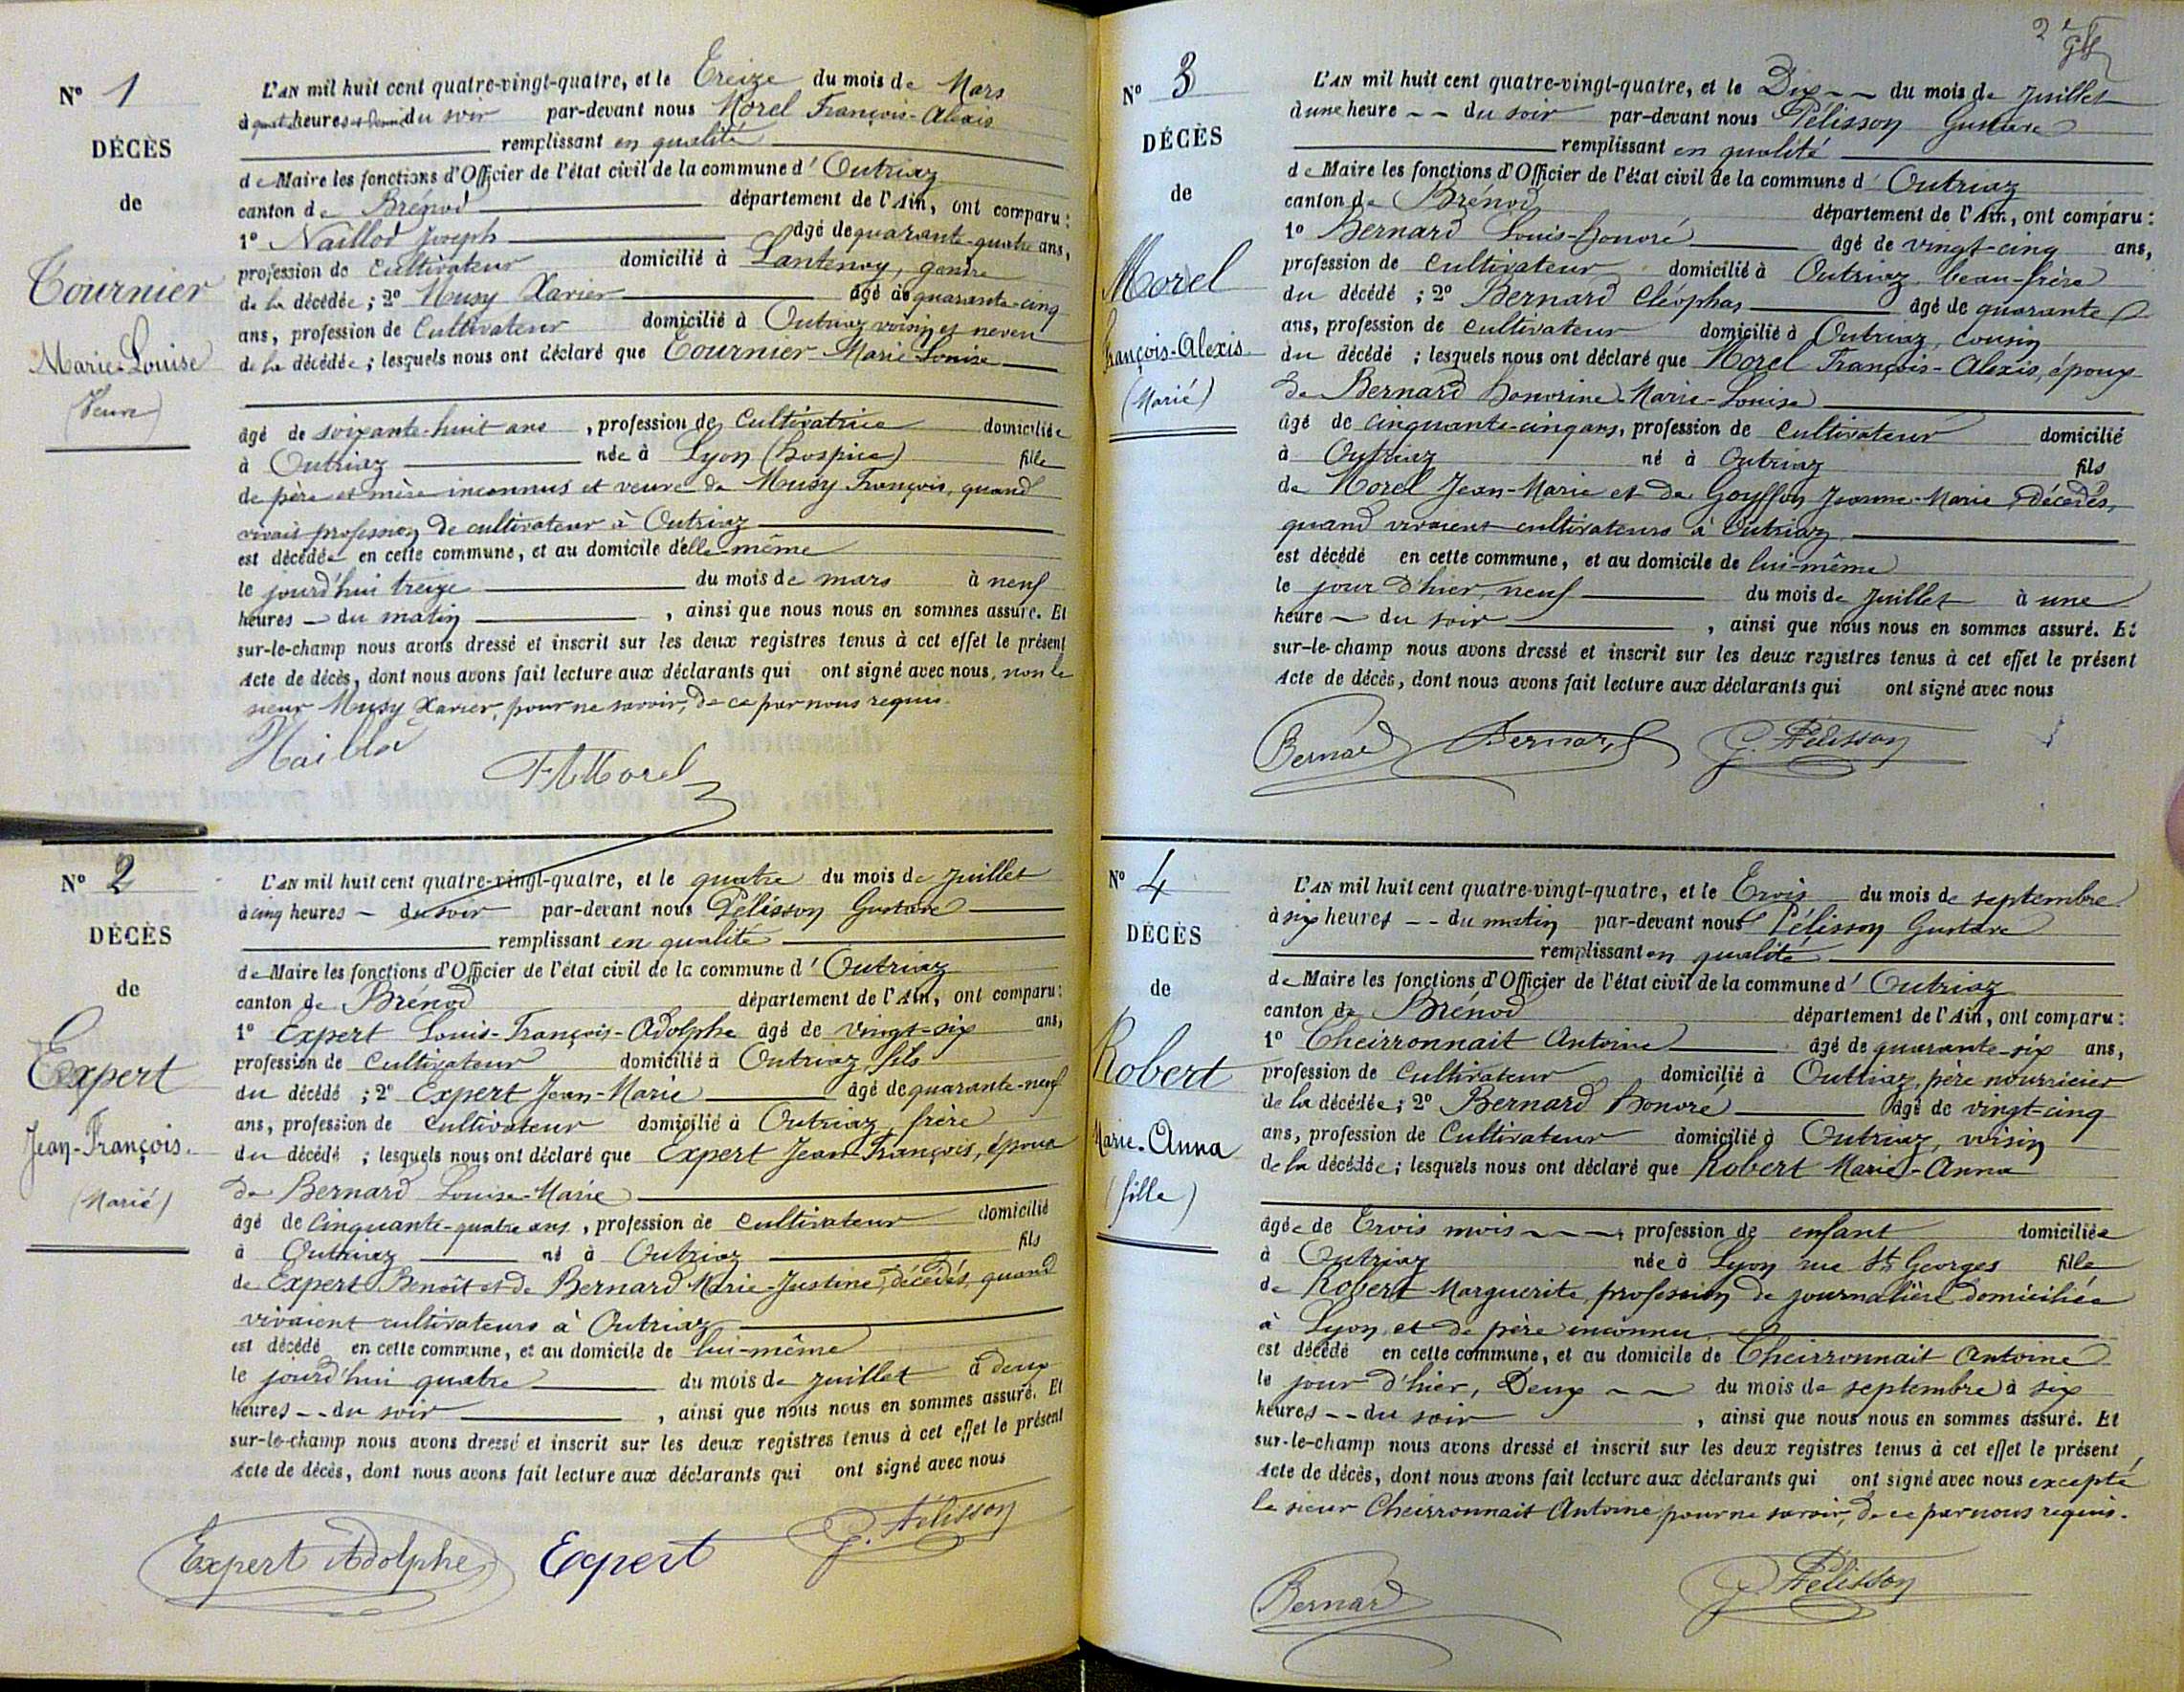 N° 1
DÉCÈS
de
Tournier
Marie-Louise
(Veuve)
L'AN mil huit cent quatre-vingt-quatre, et le Treize du mois de Mars
à quatre heures et demie du soir par-devant nous Morel François-Alexis
remplissant en qualité
de Maire les fonctions d'Officier de l'état civil de la commune d' Outriaz
canton de Brénod département de l'Ain, ont comparu :
1° Naillod Joseph âgé de quarante-quatre ans,
profession de Cultivateur domicilié à Lantenay, gendre
de la décédée ; 2° Musy Xavier âgé de quarante-cinq
ans, profession de Cultivateur domicilié à Outriaz voisin et neveu
de la décédée ; lesquels nous ont déclaré que Tournier Marie-Louise
âgé de soixante-huit ans , profession de Cultivatrice domiciliée
à Outriaz née à Lyon (hospice) fille
de père et mère inconnus et veuve de Musy François, quand
vivait profession de cultivateur à Outriaz
est décédée en cette commune, et au domicile d'elle-même
le jourd'hui treize du mois de mars à neuf
heures du matin , ainsi que nous nous en sommes assuré. Et
sur-le-champ nous avons dressé et inscrit sur les deux registres tenus à cet effet le présent
Acte de décès, dont nous avons fait lecture aux déclarants qui ont signé avec nous, non le
sieur Musy Xavier, pour ne savoir, de ce par nous requis.
Naillod FAMorel
N° 2
DÉCÈS
de
Expert
Jean-François.
(Marié)
L'AN mil huit cent quatre-vingt-quatre, et le quatre du mois de Juillet
à cinq heures - du soir par-devant nous Pélisson Gustave
remplissant en qualité
de Maire les fonctions d'Officier de l'état civil de la commune d' Outriaz
canton de Brénod département de l'Ain, ont comparu :
1° Expert Louis-François-Adolphe âgé de vingt-six ans,
profession de Cultivateur domicilié à Outriaz, fils
du décédé ; 2° Expert Jean-Marie âgé de quarante-neuf
ans, profession de Cultivateur domicilié à Outriaz, frère
du décédé ; lesquels nous ont déclaré que Expert Jean-François, époux
de Bernard Louise-Marie
âgé de Cinquante-quatre ans , profession de Cultivateur domicilié
à Outriaz né à Outriaz fils
de Expert Benoît et de Bernard Marie-Justine, décédés, quand
vivaient cultivateurs à Outriaz
est décédé en cette commune, et au domicile de lui-même
le jourd'hui quatre du mois de juillet à deux
heures -- du soir , ainsi que nous nous en sommes assuré. Et
sur-le-champ nous avons dressé et inscrit sur les deux registres tenus à cet effet le présent
Acte de décès, dont nous avons fait lecture aux déclarants qui ont signé avec nous
Expert Adolphe Expert G. Pélisson
2e
N° 3
DÉCÈS
de
Morel
François-Alexis
(Marié)
L'AN mil huit cent quatre-vingt-quatre, et le Dix -- du mois de Juillet
à une heure -- du soir par-devant nous Pélisson Gustave
remplissant en qualité
de Maire les fonctions d'Officier de l'état civil de la commune d' Outriaz
canton de Brénod département de l'Ain, ont comparu :
1° Bernard Louis-honoré âgé de vingt-cinq ans,
profession de Cultivateur domicilié à Outriaz, beau-frère
du décédé ; 2° Bernard Cléophas âgé de quarante
ans, profession de cultivateur domicilié à Outriaz, cousin
du décédé ; lesquels nous ont déclaré que Morel François-Alexis, époux
de Bernard honorine-Marie-Louise
âgé de cinquante-cinq ans, profession de cultivateur domicilié
à Outriaz né à Outriaz fils
de Morel Jean-Marie et de Goyffon Jeanne-Marie, décédés,
quand vivaient cultivateurs à Outriaz
est décédé en cette commune, et au domicile de lui-même
le jour d'hier, neuf du mois de Juillet à une
heure - du soir , ainsi que nous nous en sommes assuré. Et
sur-le-champ nous avons dressé et inscrit sur les deux registres tenus à cet effet le présent
Acte de décès, dont nous avons fait lecture aux déclarants qui ont signé avec nous
Bernard Bernard G. Pélisson
N° 4
DÉCÈS
de
Robert
Marie-Anna
(fille)
L'AN mil huit cent quatre-vingt-quatre, et le Trois du mois de septembre
à six heures -- du matin par-devant nous Pélisson Gustave
remplissant en qualité
de Maire les fonctions d'Officier de l'état civil de la commune d' Outriaz
canton de Brénod département de l'Ain, ont comparu :
1° Cheirronnait Antoine âgé de quarante-six ans,
profession de Cultivateur domicilié à Outriaz, père nourricier
de la décédée ; 2° Bernard honoré âgé de vingt-cinq
ans, profession de Cultivateur domicilié à Outriaz, voisin
de la décédée ; lesquels nous ont déclaré que Robert Marie-Anna
âgée de Trois mois ---, profession de enfant domiciliée
à Outriaz née à Lyon rue St Georges fille
de Robert Marguerite, profession de journalière domiciliée
à Lyon et de père inconnu
est décédé en cette commune, et au domicile de Cheirronnait Antoine
le jour d'hier, Deux -- du mois de septembre à six
heures -- du soir , ainsi que nous nous en sommes assuré. Et
sur-le-champ nous avons dressé et inscrit sur les deux registres tenus à cet effet le présent
Acte de décès, dont nous avons fait lecture aux déclarants qui ont signé avec nous excepté
le sieur Cheirronnait Antoine pour ne savoir, de ce par nous requis.
Bernard G. Pélisson